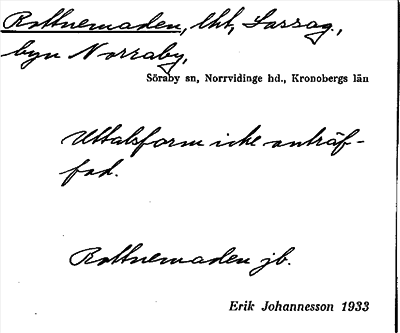 Rottnemaden, lht, Sarsag.,
byn Norraby,
Söraby sn, Norrvidinge hd., Kronobergs län
Uttalsform icke anträf-
fad.
Rottnemaden jb.
Erik Johannesson 1933